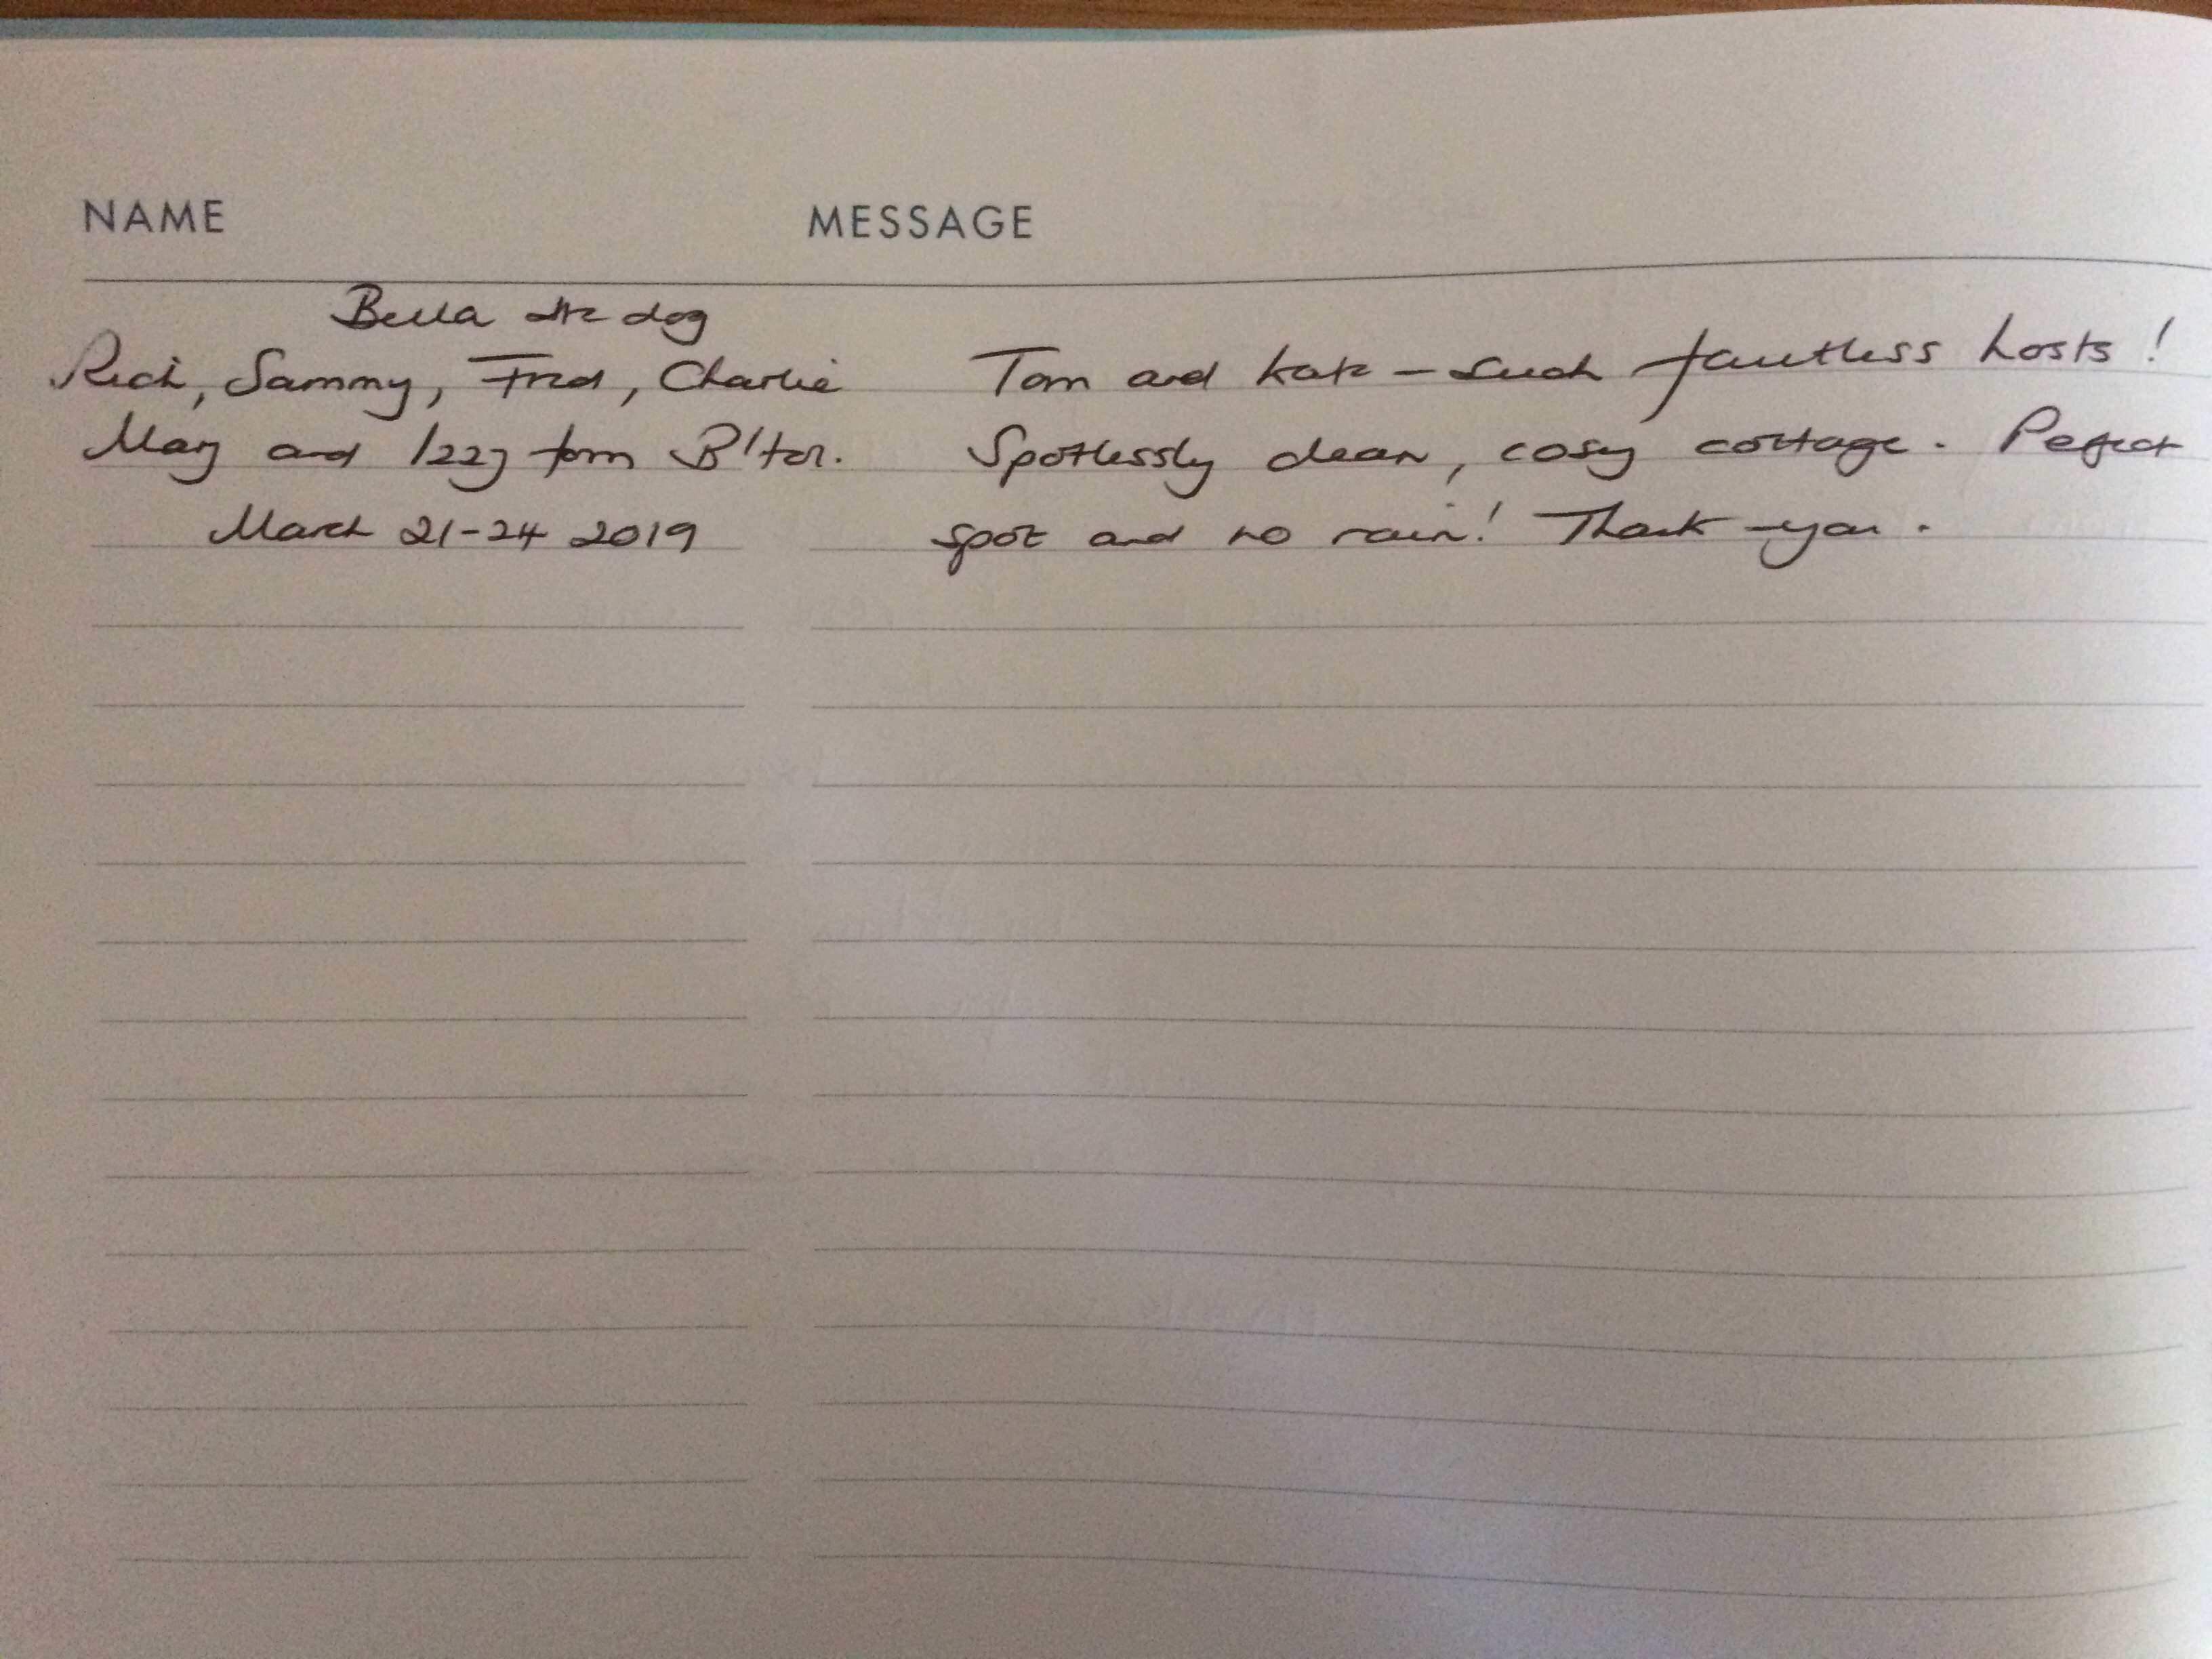 NAME
MESSAGE
Bella the dog
Rich, Sammy, Fred, Charlie
May and Izzy from B'ton.
March 21-24 2019
Tom and Kate - such faultless hosts!
Spotlessly clean, cosy cottage. Perfect
spot and no rain! Thank-you.